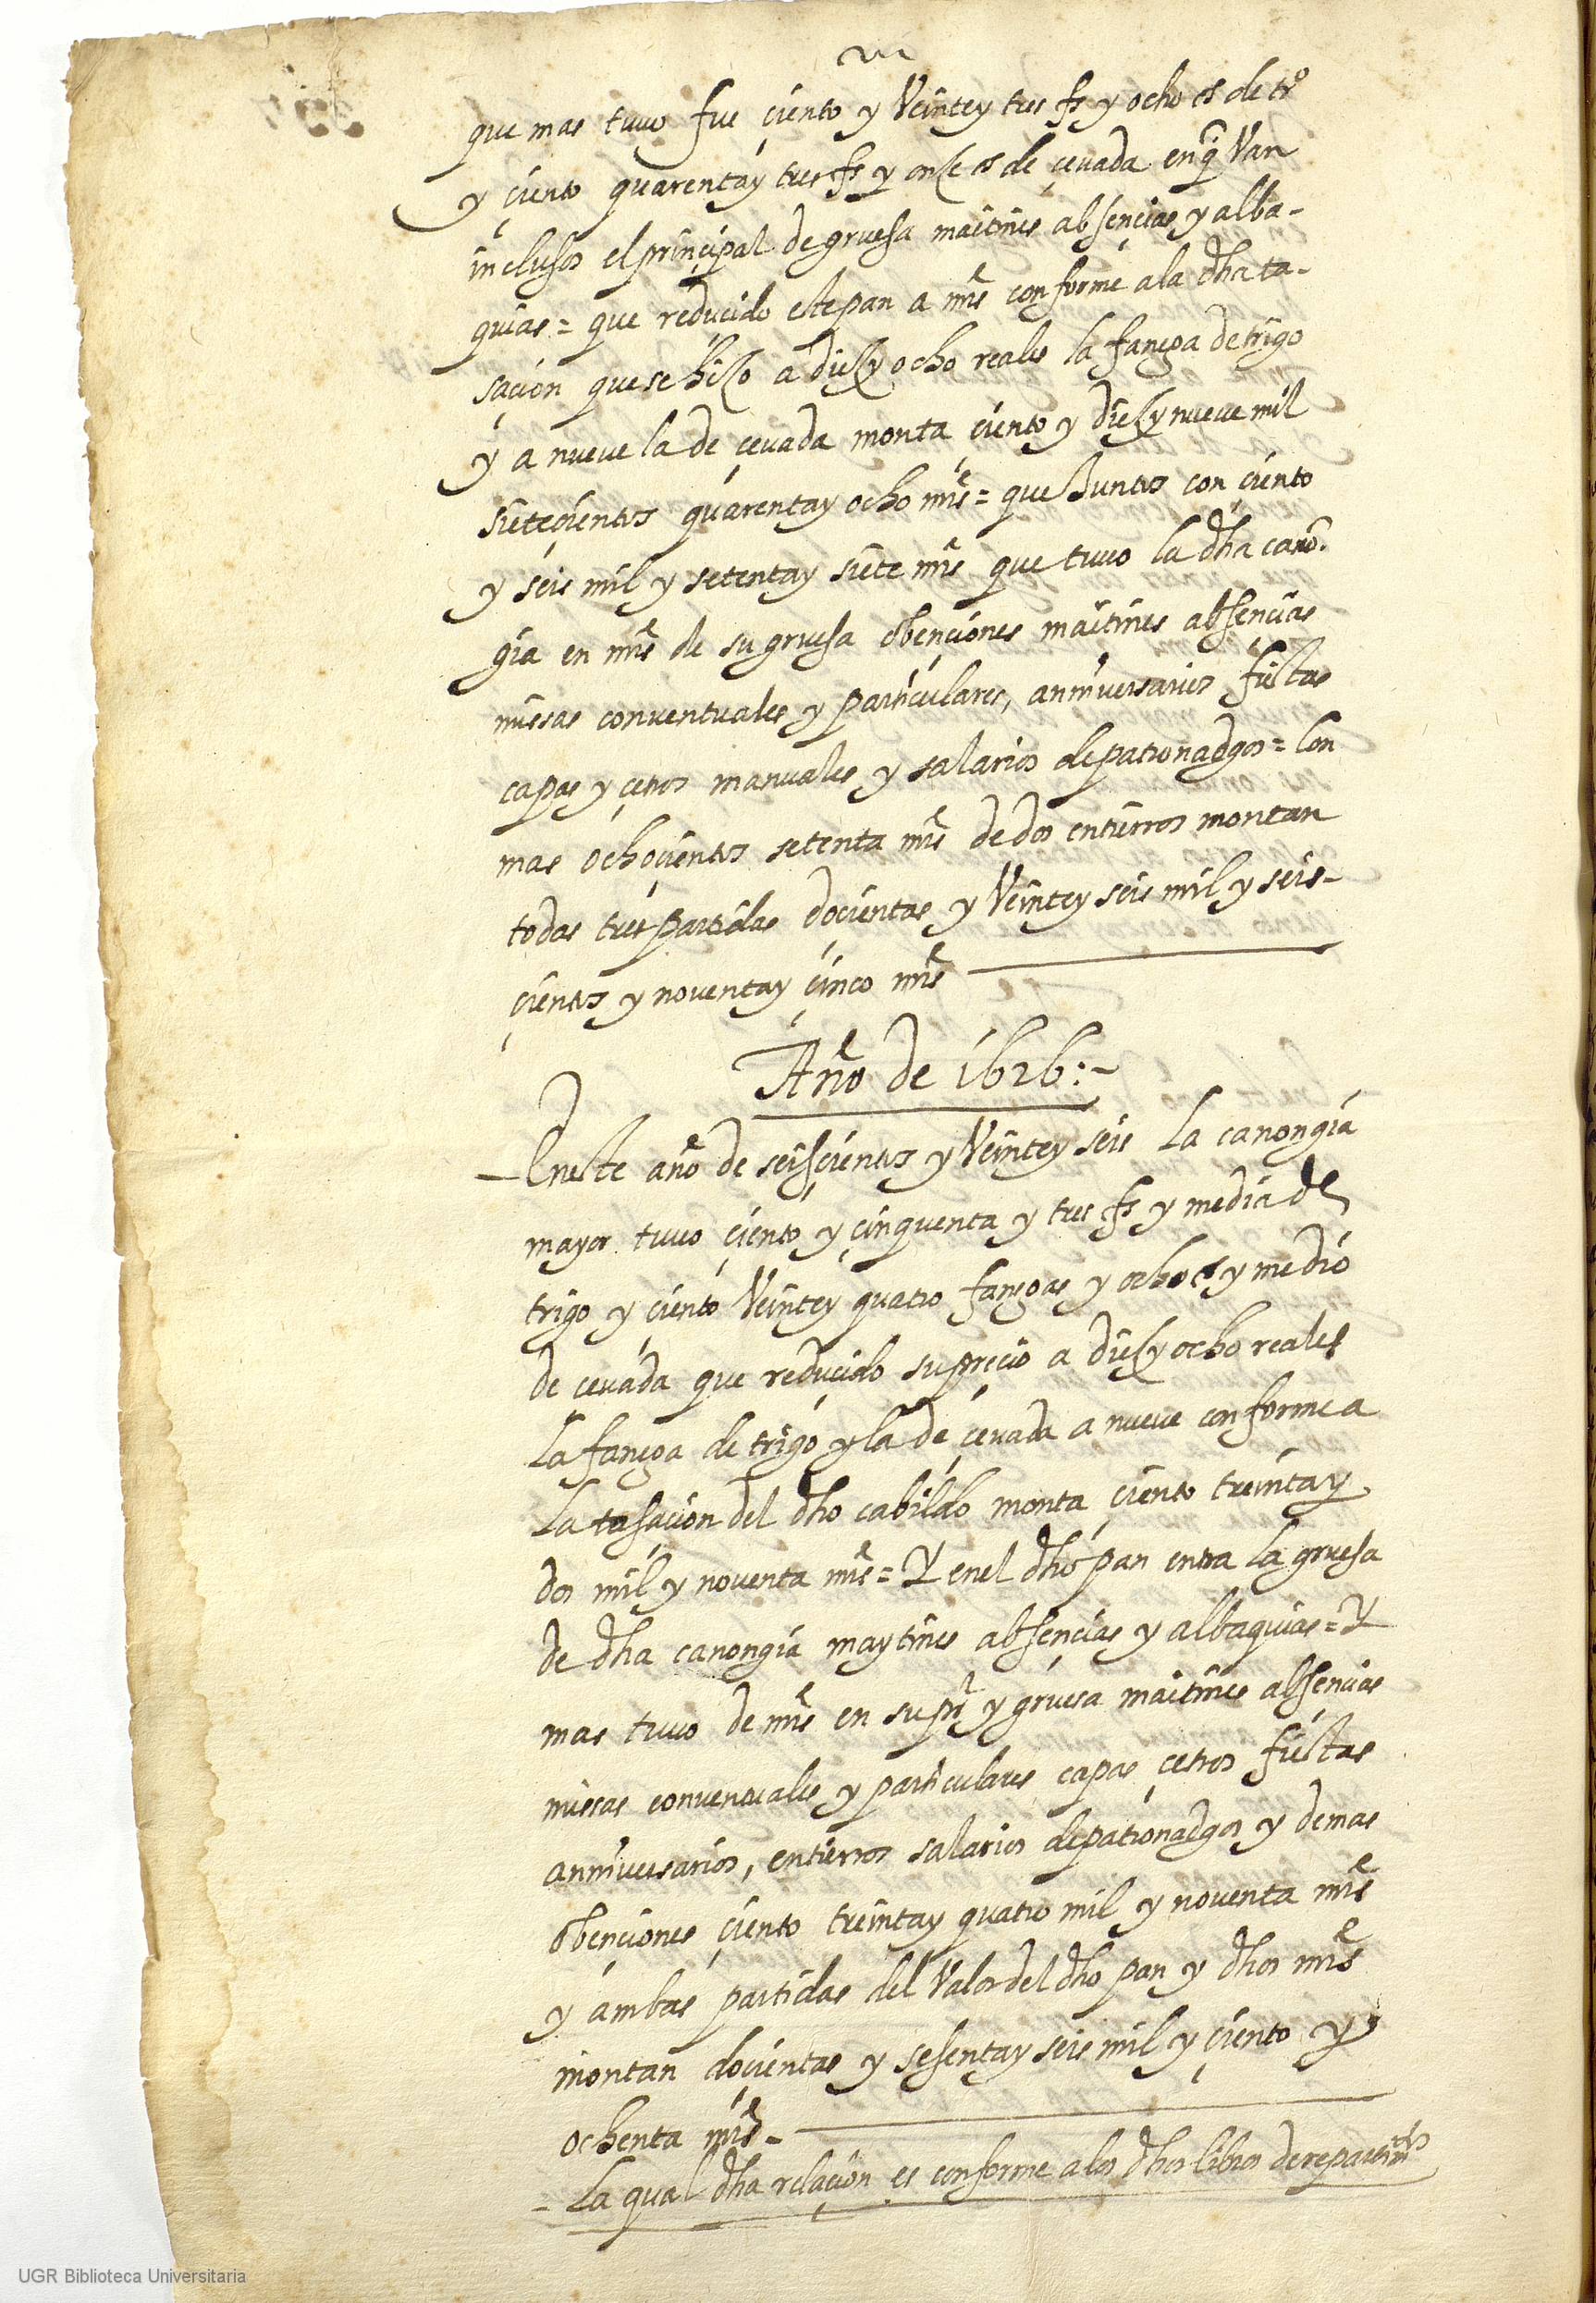 que mas tuuo fue çiento y Veinte y tres fs y ocho cs de trº
y çiento quarenta y tres fs y onze cs de çeuada en q̃ Van
inclusos el prinçipal de gruesa maitines absençias y alba-
quias = que reduçido este pan a mrs conforme a la dha ta-
saçion que se hizo a diez y ocho reales la fanega de trigo
y a nueve la de çeuada monta çiento y diez y nueve mil
sieteçientos quarenta y ocho mrs = que Juntos con çiento
y seis mil y setenta y siete mrs que tuuo la dha cano-
gia en mrs de su gruesa obençiones maitines absençias
missas conventuales y particulares, anniversarios fiestas
capas y çetros manuales y salarios de patronadgos = Con
mas ochoçientos setenta mrs de dos entierros montan
todas tres partidas doçientas y Veinte y seis mil y seis-
çientos y noventa y çinco mrs
Año de 1626:-
- En este año de seisçientos y Veinte y seis La canongia
mayor tuuo çiento y çinquenta y tres fs y media de
trigo y çiento Veinte y quatro fanegas y ocho cs y medio
de çeuada que reduçido su preçio a diez y ocho reales
La fanega de trigo y la de çeuada a nueve conforme a
La tasaçion del dho cabildo monta çiento treinta y
dos mil y noventa mrs = Y en el dho pan entra la gruesa
de dha canongia maytines absençias y albaquias = Y
mas tuuo de mrs en su prl y gruesa maitines absençias
missas conventuales y particulares capas çetros fiestas
anniversarios, entierros salarios de patronadgos y demas
obençiones çiento treinta y quatro mil y noventa mrs
y ambas partidas del Valor del dho pan y dhos mrs
montan doçientas y sesenta y seis mil y çiento y
ochenta mrs -
= La qual dha relaçion es conforme a los dhos libros de repartimtos
UGR Biblioteca Universitaria